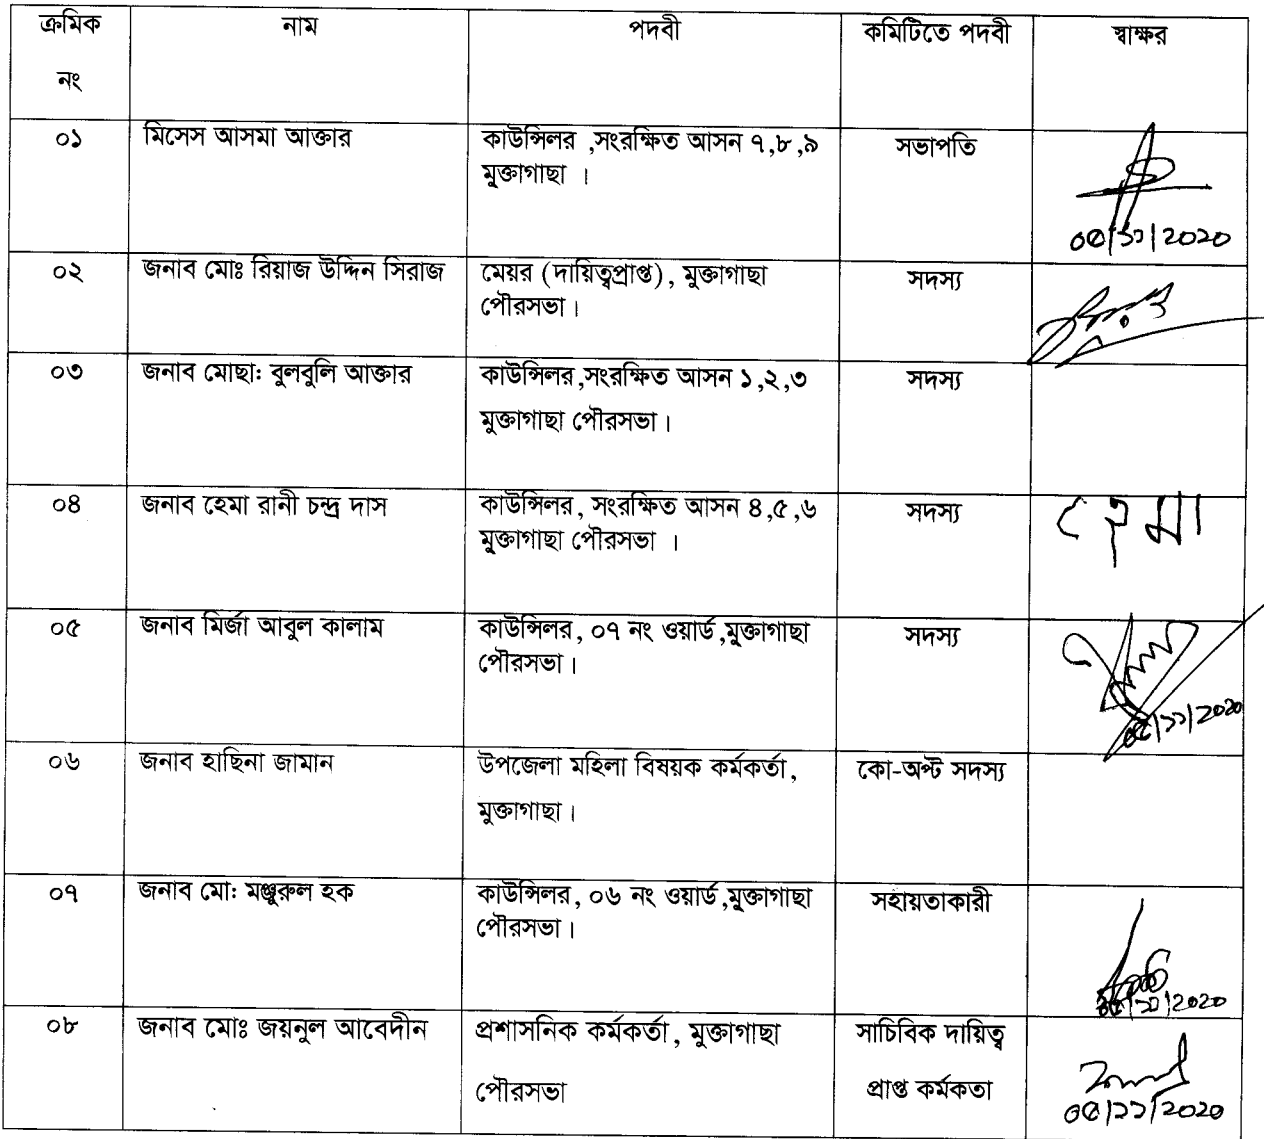 ক্রমিক নং | নাম | পদবী | কমিটিতে পদবী | স্বাক্ষর
০১ | মিসেস আসমা আক্তার | কাউন্সিলর ,সংরক্ষিত আসন ৭,৮,৯
মুক্তাগাছা । | সভাপতি | ০৫/১১/2020
০২ | জনাব মোঃ রিয়াজ উদ্দিন সিরাজ | মেয়র (দায়িত্বপ্রাপ্ত), মুক্তাগাছা
পৌরসভা। | সদস্য
০৩ | জনাব মোছা: বুলবুলি আক্তার | কাউন্সিলর,সংরক্ষিত আসন ১,২,৩
মুক্তাগাছা পৌরসভা। | সদস্য
০৪ | জনাব হেমা রানী চন্দ্র দাস | কাউন্সিলর, সংরক্ষিত আসন ৪,৫,৬
মুক্তাগাছা পৌরসভা । | সদস্য | হেমা
০৫ | জনাব মির্জা আবুল কালাম | কাউন্সিলর, ০৭ নং ওয়ার্ড,মুক্তাগাছা
পৌরসভা। | সদস্য | ০৫/১১/2020
০৬ | জনাব হাছিনা জামান | উপজেলা মহিলা বিষয়ক কর্মকর্তা,
মুক্তাগাছা। | কো-অপ্ট সদস্য
০৭ | জনাব মো: মঞ্জুরুল হক | কাউন্সিলর, ০৬ নং ওয়ার্ড,মুক্তাগাছা
পৌরসভা। | সহায়তাকারী | ০৫/১১/2020
০৮ | জনাব মোঃ জয়নুল আবেদীন | প্রশাসনিক কর্মকর্তা, মুক্তাগাছা
পৌরসভা | সাচিবিক দায়িত্ব
প্রাপ্ত কর্মকতা | ০৫/১১/2020